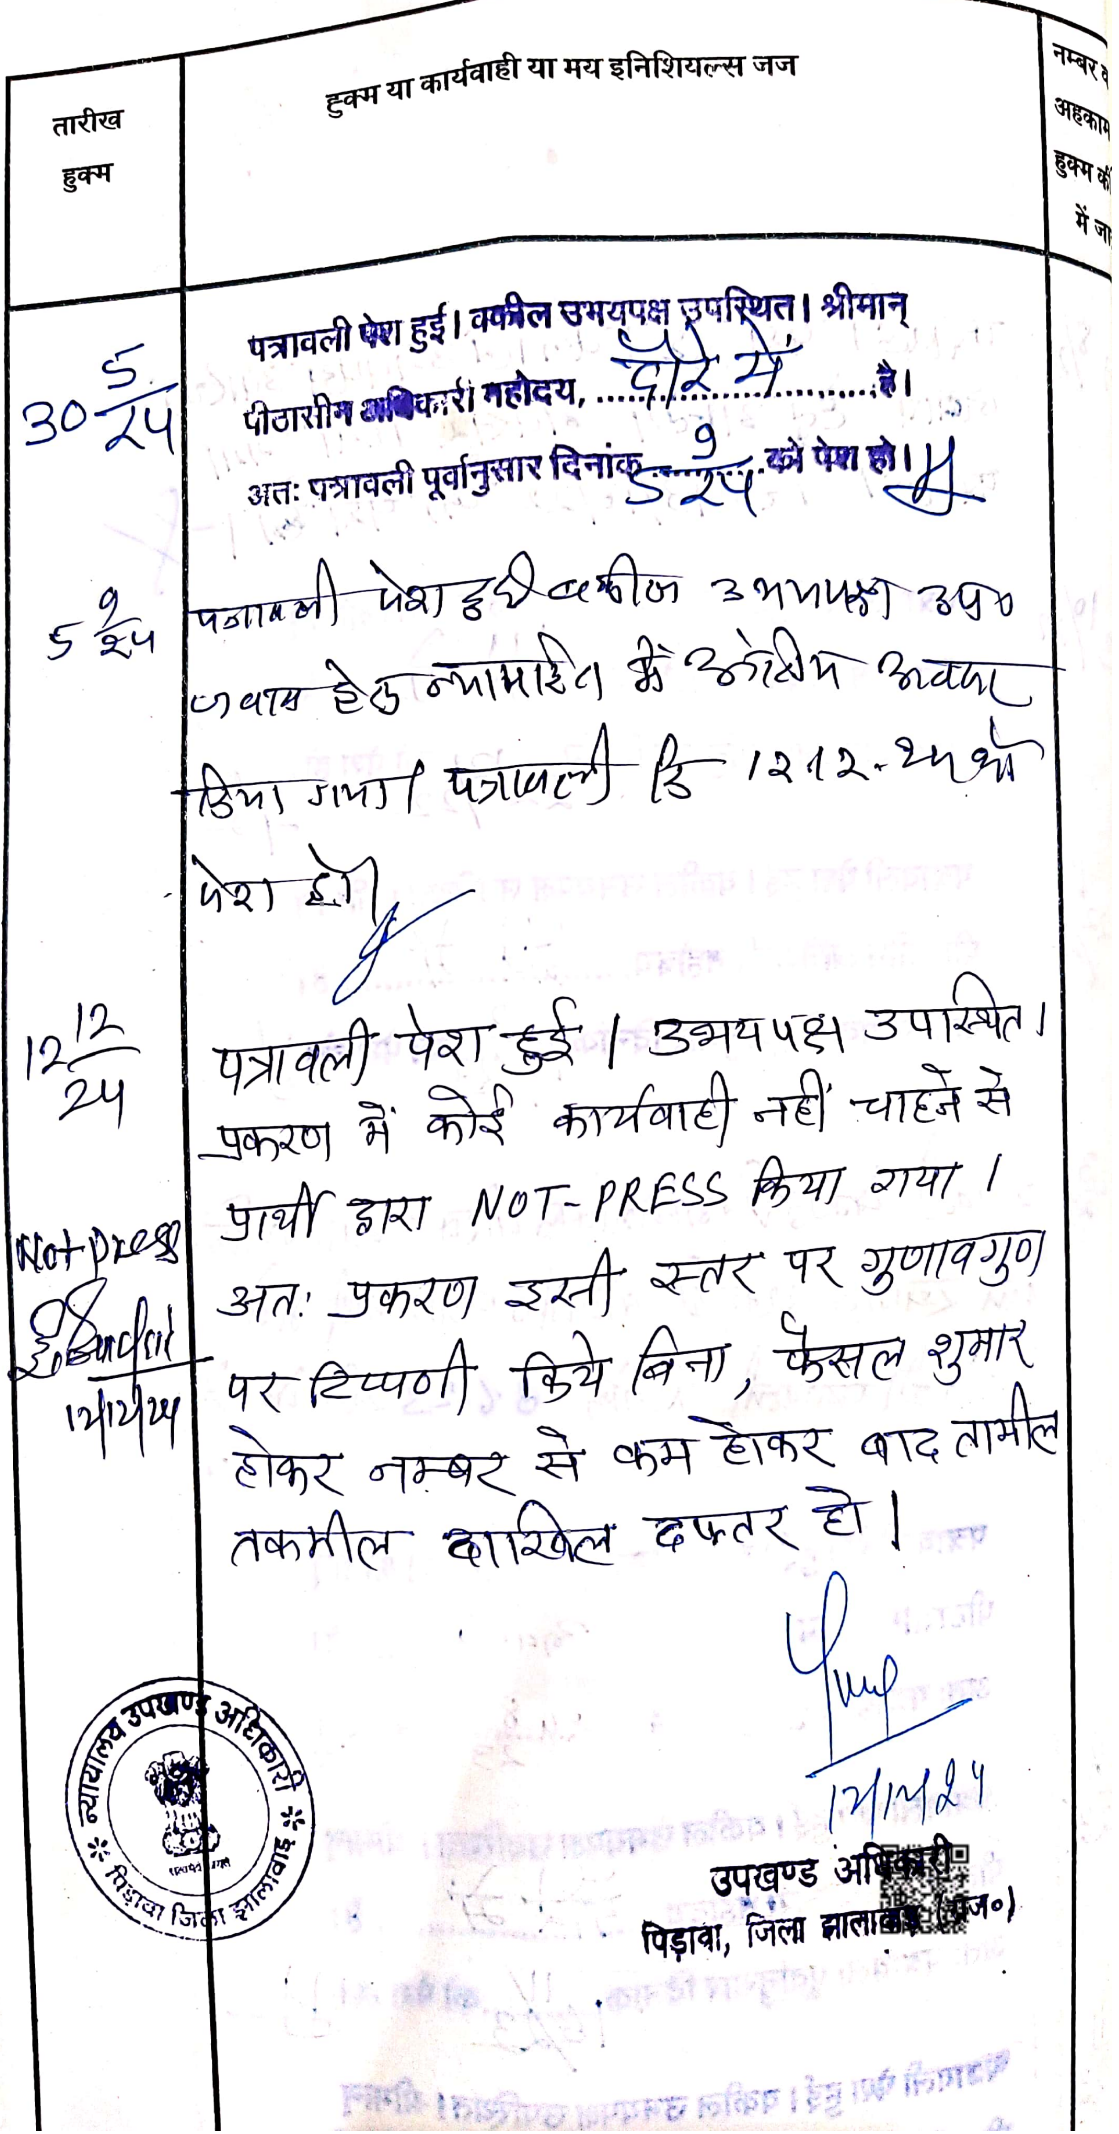 तारीख
हुक्म
हुक्म या कार्यवाही या मय इनिशियल्स जज
नम्बर व
अहकाम
हुक्म की
में जा
30 5/24
पत्रावली पेश हुई। वकील उभयपक्ष उपस्थित। श्रीमान्
पीठासीन अधिकारी महोदय, दौरे में है।
अतः पत्रावली पूर्वानुसार दिनांक 5 9/24 को पेश हो।
5 9/24
पत्रावली पेश हुई वकील उभयपक्ष उप०
जवाब हेतु न्यायहित में अवसर
दिया गया। पत्रावली दि 12.12.24 को
पेश हो।
12 12/24
पत्रावली पेश हुई। उभयपक्ष उपस्थित।
प्रकरण में कोई कार्यवाही नहीं चाहने से
प्रार्थी द्वारा NOT-PRESS किया गया।
Not press
अतः प्रकरण इसी स्तर पर गुणावगुण
पर टिप्पणी किये बिना, फैसल शुमार
12/12/24
होकर नम्बर से कम होकर बाद तामील
तकमील दाखिल दफ्तर हो।
12/12/24
न्यायालय उपखण्ड अधिकारी
पिड़ावा जिला झालावाड़
उपखण्ड अधिकारी
पिड़ावा, जिला झालावाड़ (राज०)